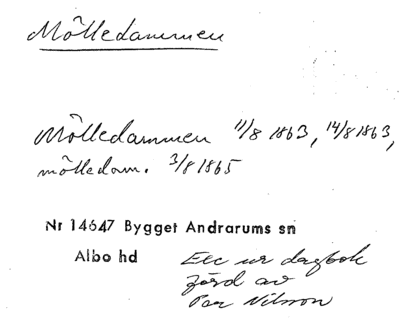 Mölledammen
Mölledammen 11/8 1863, 14/8 1863,
mölledam. 3/8 1865
Nr 14647 Bygget Andrarums sn
Albo hd
Exc ur dagbok
förd av
Par Nilsson